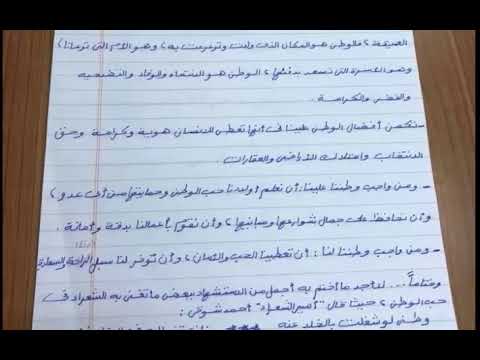 العميقة ، فالوطن هو المكان الذي ولدت وترعرعت به ، وهو الأم التي ترعانا ،
وهو الأسرة التي نسعد بدفئها ، الوطن هو الانتماء والوفاء والتضحية
والفخر والكرامة .
- تكمن أفضال الوطن علينا في أنها تعطي للإنسان هوية وكرامة وحق
الانتخاب وامتلاك الأراضي والعقارات .
- ومن واجب وطننا علينا : أن نعلم أولادنا حب الوطن وحمايتها من أي عدو ،
وأن نحافظ على جمال شوارعها ومبانيها ، وأن نقوم بأعمالنا بدقة وأمانة .
- ومن واجب وطننا لنا : أن تعطينا الحب والأمان ، وأن توفر لنا سبل الراحة والسعادة
وختاماً ... لا أجد ما أختم به أجمل من الاستشهاد ببعض ما تغنى به الشعراء في
حب الوطن ، حيث قال " أمير الشعراء " أحمد شوقي :
وطني لو شغلت بالخلد عنه